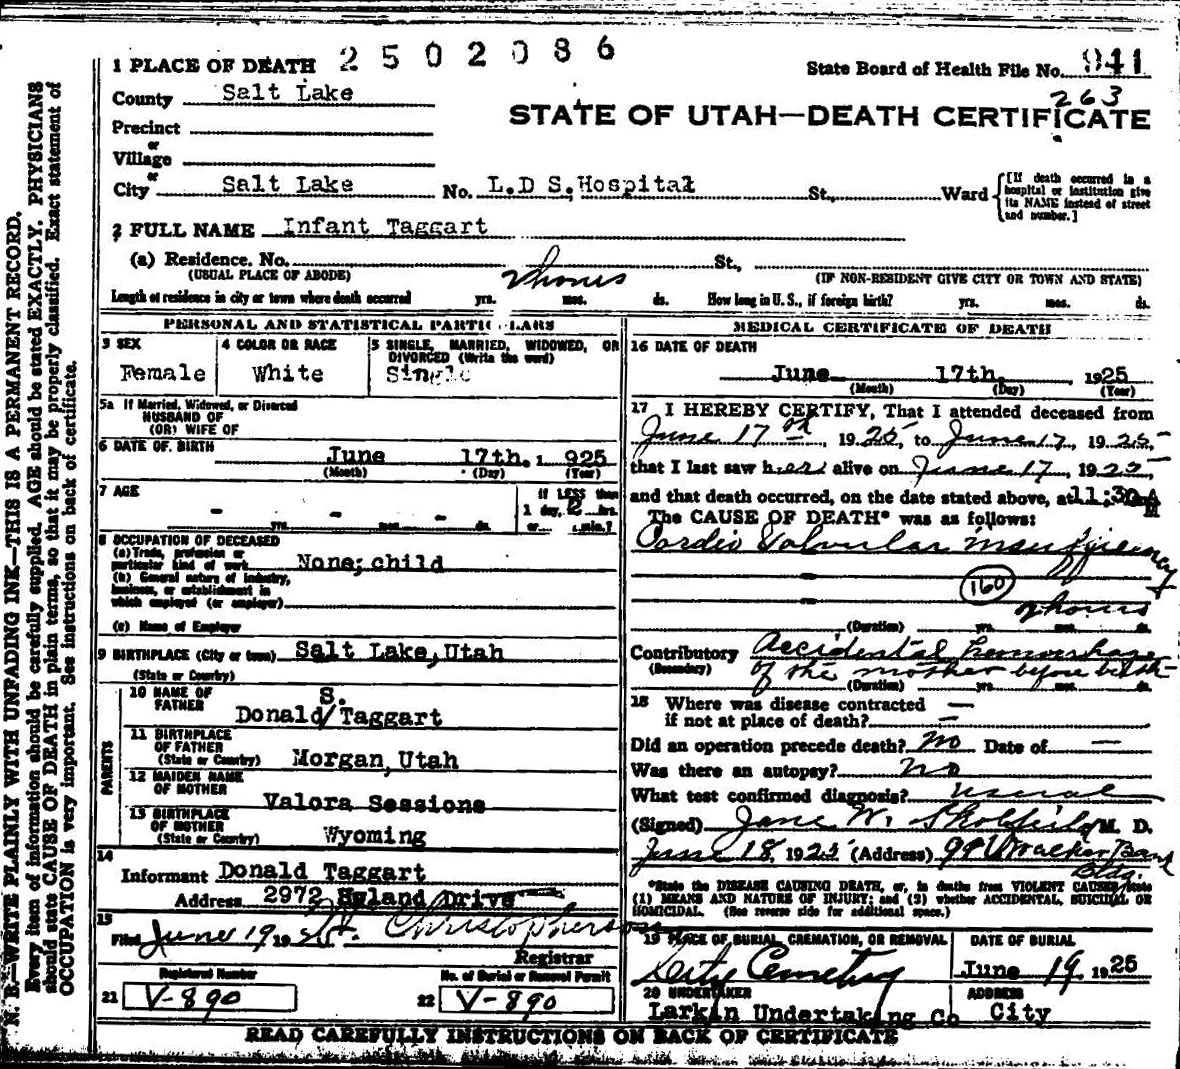 1 PLACE OF DEATH 2502086
State Board of Health File No. 941
263
County Salt Lake
STATE OF UTAH—DEATH CERTIFICATE
Precinct
or
Village
or
City Salt Lake No. L.D S. Hospital St., Ward
[If death occurred in a hospital or institution give its NAME instead of street and number.]
2 FULL NAME Infant Taggart
(a) Residence. No. St.,
(USUAL PLACE OF ABODE) (IF NON-RESIDENT GIVE CITY OR TOWN AND STATE)
Length of residence in city or town where death occurred yrs. mos. ds. How long in U. S., if foreign birth? yrs. mos. ds.
hours
PERSONAL AND STATISTICAL PARTICULARS
3 SEX
Female
4 COLOR OR RACE
White
5 SINGLE, MARRIED, WIDOWED, OR
DIVORCED (Write the word)
Single
5a If Married, Widowed, or Divorced
HUSBAND OF
(OR) WIFE OF
6 DATE OF BIRTH June 17th. 1925
(Month) (Day) (Year)
7 AGE
- - -
yrs. mos. ds.
If LESS than
1 day, 2 hrs.
or min.?
8 OCCUPATION OF DECEASED
(a) Trade, profession or
particular kind of work None; child
(b) General nature of industry,
business, or establishment in
which employed (or employer)
(c) Name of Employer
9 BIRTHPLACE (City or town) Salt Lake, Utah
(State or Country)
PARENTS
10 NAME OF
FATHER
S.
Donald/Taggart
11 BIRTHPLACE
OF FATHER
(State or Country) Morgan, Utah
12 MAIDEN NAME
OF MOTHER
Valora Sessions
13 BIRTHPLACE
OF MOTHER
(State or Country) Wyoming
14
Informant Donald Taggart
Address 2972 Hyland Drive
15
Filed June 19 19 Christopherson
Registrar
Registered Number
21 V-890
No. of Burial or Removal Permit
22 V-890
MEDICAL CERTIFICATE OF DEATH
16 DATE OF DEATH
June 17th. , 1925
(Month) (Day) (Year)
17 I HEREBY CERTIFY, That I attended deceased from
June 17th, 1925, to June 17, 1925,
that I last saw her alive on June 17, 1925
and that death occurred, on the date stated above, at 11:30 A M
The CAUSE OF DEATH* was as follows:
Cardio Valvular insufficiency
160
2 hours
(Duration) yrs. mos. ds.
Contributory Accidental hemorrhage
(Secondary) of the mother before birth
(Duration) yrs. mos. ds.
18 Where was disease contracted —
if not at place of death? —
Did an operation precede death? No Date of —
Was there an autopsy? No
What test confirmed diagnosis? usual
(Signed) Jane W. Skolfield M. D.
June 18, 1925 (Address) Walker Bank
Bldg.
*State the DISEASE CAUSING DEATH, or, in deaths from VIOLENT CAUSES, state
(1) MEANS AND NATURE OF INJURY; and (2) whether ACCIDENTAL, SUICIDAL OR
HOMICIDAL. (See reverse side for additional space.)
19 PLACE OF BURIAL, CREMATION, OR REMOVAL
City Cemetry
DATE OF BURIAL
June 19. 1925
20 UNDERTAKER
Larkin Undertaking Co
ADDRESS
City
READ CAREFULLY INSTRUCTIONS ON BACK OF CERTIFICATE
N. B.—WRITE PLAINLY WITH UNFADING INK—THIS IS A PERMANENT RECORD.
Every item of information should be carefully supplied. AGE should be stated EXACTLY. PHYSICIANS
should state CAUSE OF DEATH in plain terms, so that it may be properly classified. Exact statement of
OCCUPATION is very important. See instructions on back of certificate.